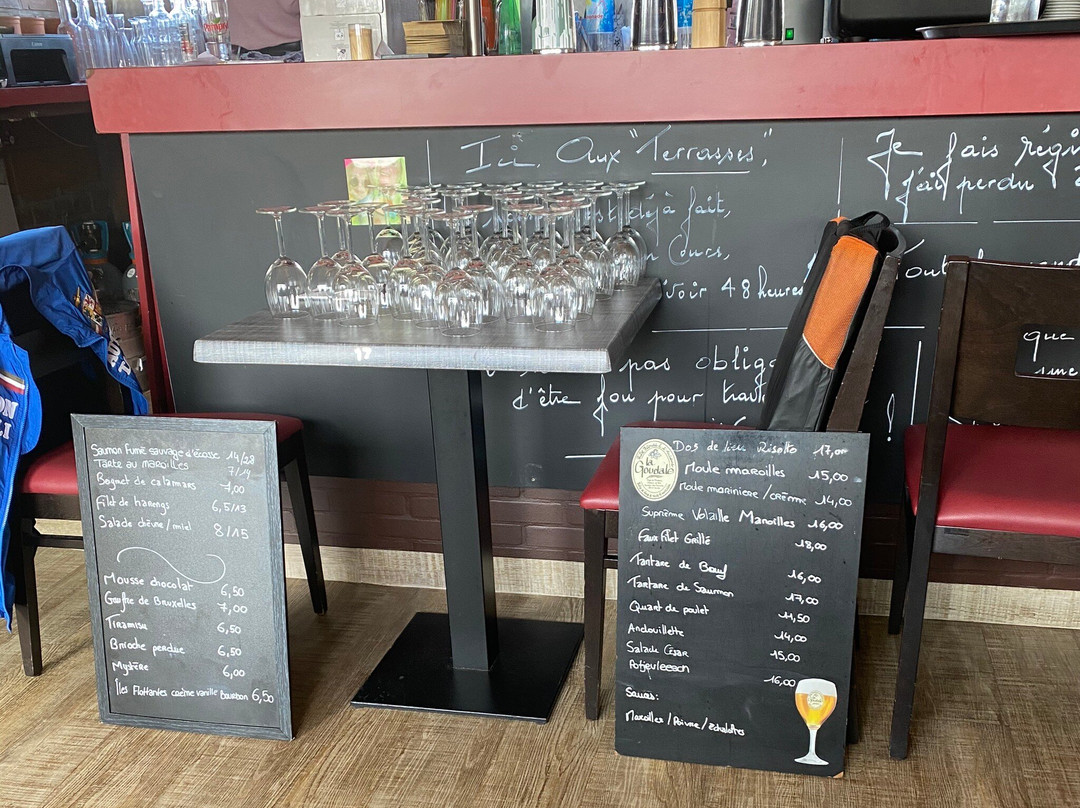 Ici, Aux "Terrasses",
déjà fait,
voir 48 heures
pas oblig
d'être fou pour trav
!
Je fais régi
j'ai perdu
Tout
que
17
Saumon Fumé sauvage d'écosse 14/28
Tarte au maroilles 7/14
Beignet de calamars 7,00
Filet de harengs 6,5/13
Salade chèvre/miel 8/15
Mousse chocolat 6,50
Gauffre de Bruxelles 7,00
Tiramisu 6,50
Brioche perdue 6,50
Mystère 6,00
Îles Flottantes crème vanille Bourbon 6,50
la Goudale
Dos de lieu Risotto 17,00
Moule maroilles 15,00
Moule marinière/crème 14,00
Suprême Volaille Maroilles 16,00
Faux Filet Grillé 18,00
Tartare de Bœuf 16,00
Tartare de Saumon 17,00
Quart de poulet 11,50
Andouillette 14,00
Salade César 15,00
Potjevleesch 16,00
Sauces:
Maroilles/Poivre/échalottes